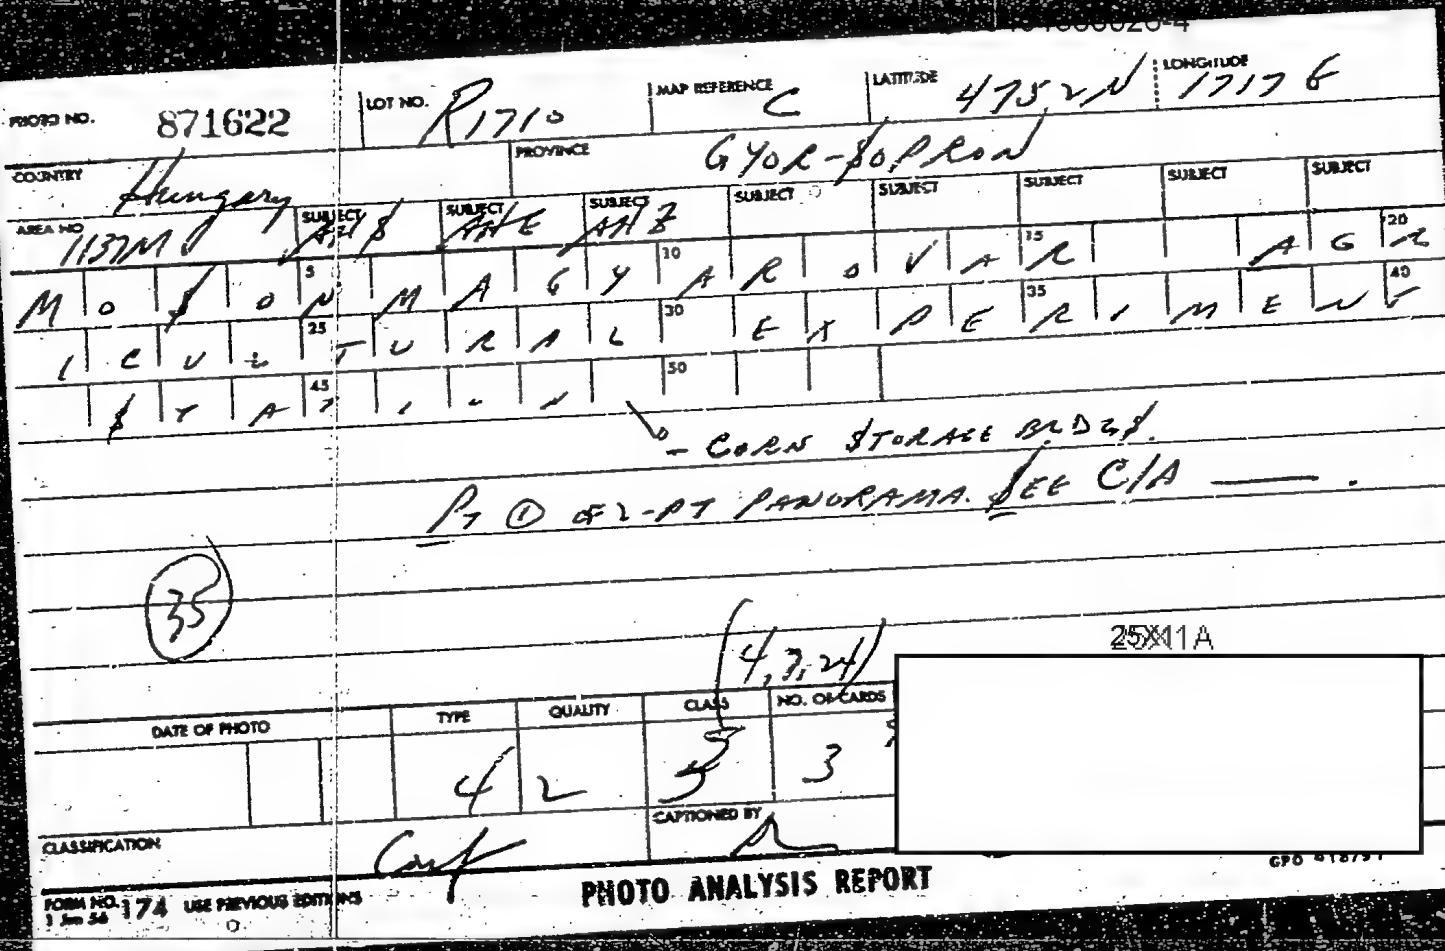 PHOTO NO. 871622 LOT NO. R1710 MAP REFERENCE C LATITUDE 4752N LONGITUDE 1717E
COUNTRY Hungary PROVINCE GYOR-SOPRON
AREA NO 1137M SUBJECT AH$ SUBJECT AHE SUBJECT AHZ SUBJECT SUBJECT SUBJECT SUBJECT SUBJECT
MOSON 5 MAGY 10 AROVAR 15 AGR 20
ICULTURAL 25 30 EXPERIMENT 35 40
STATION 45 50
- CORN STORAGE BLDGS.
PT ① OF 2-PT PANORAMA. SEE C/A ——— .
35
(4,7,24)
25X1A
DATE OF PHOTO TYPE QUALITY CLASS NO. OF CARDS
4 2 5 3
CLASSIFICATION Conf CAPTIONED BY
FORM NO. 174 USE PREVIOUS EDITIONS PHOTO ANALYSIS REPORT GPO
1 Jun 56